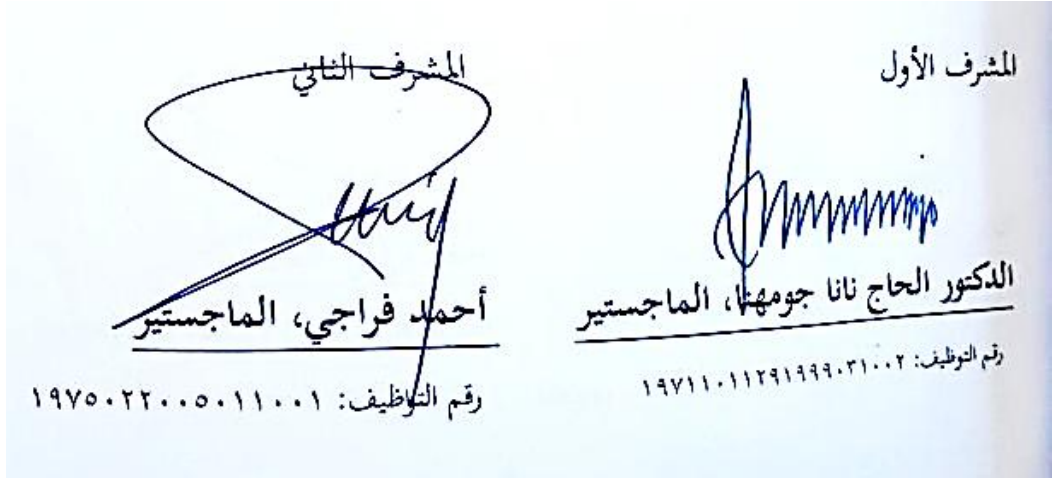 المشرف الأول
الدكتور الحاج نانا جومهنا، الماجستير
رقم التوظيف: ١٩٧١١٠١١٢٩١٩٩٩٠٣١٠٠٢
المشرف الثاني
أحمد فراجي، الماجستير
رقم التوظيف: ١٩٧٥٠٢٢٠٠٥٠١١٠٠١